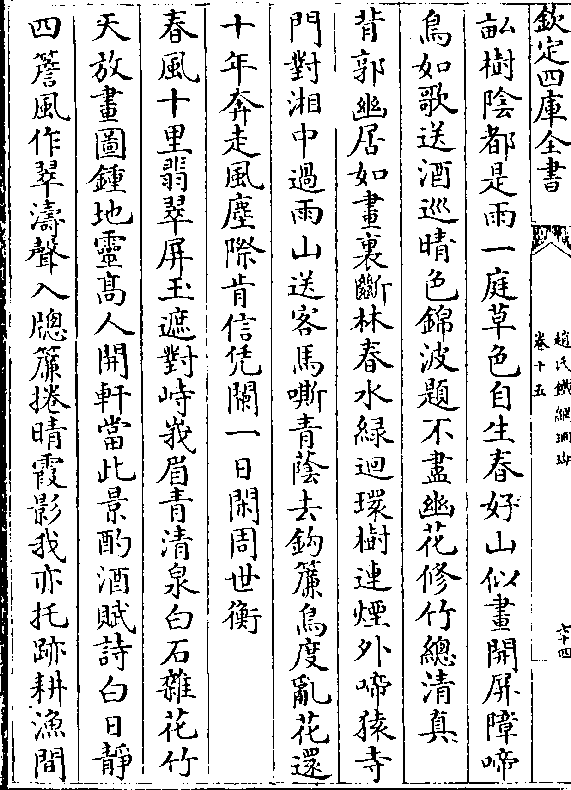 欽定四庫全書
趙氏鐵網珊瑚
卷十五
六十四
畝樹陰都是雨一庭草色自生春好山似畫開屏障啼
鳥如歌送酒巡晴色錦波題不盡幽花修竹總清真
背郭幽居如畫裏斷林春水緑迴環樹連煙外啼猿寺
門對湘中過雨山送客馬嘶青蔭去鈎簾鳥度亂花還
十年奔走風塵際肯信凭闌一日閑周世衡
春風十里翡翠屏玉遮對峙峩眉青清泉白石雜花竹
天放畫圖鍾地靈髙人開軒當此景酌酒賦詩白日靜
四簷風作翠濤聲入牕簾捲晴霞影我亦托跡耕漁間